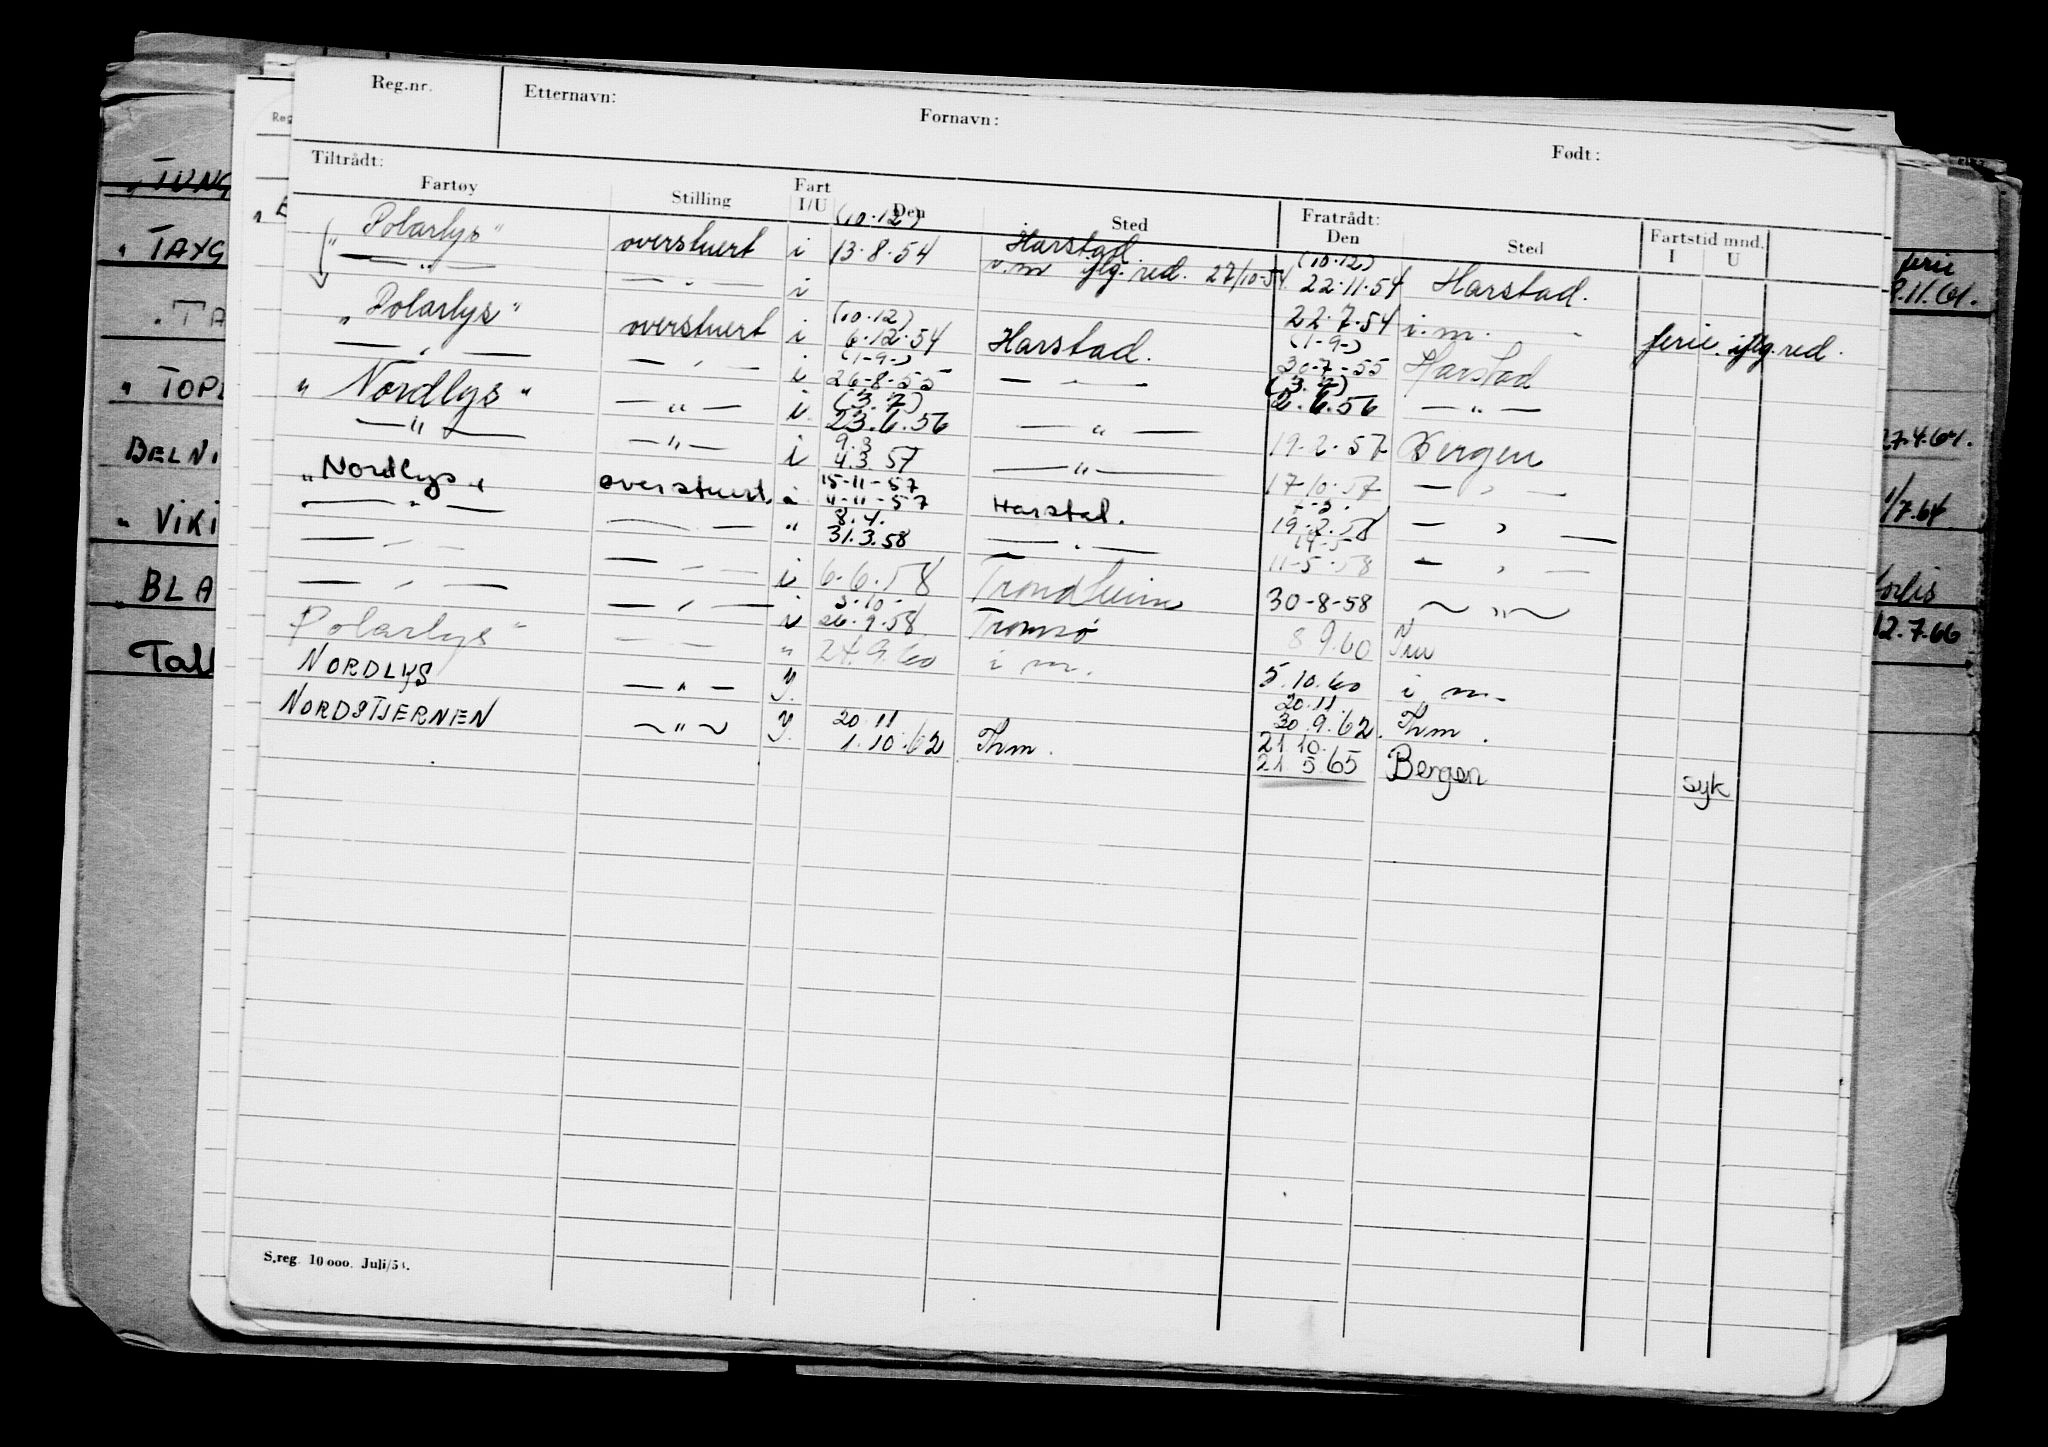 Reg.nr. Etternavn: Fornavn: Født:
Tiltrådt: Fratrådt:
Fartøy Stilling Fart I/U Den Sted Den Sted Fartstid mnd. I U
(10.12) (10.12)
"Polarlys" overstuert i 13.8.54 Harstad. 22.11.54 Harstad.
— " — — " — i v.m iflg. red. 27/10-54. 22.7.54 i.m. ferie iflg. red.
(10.12) (1-9-)
"Polarlys" overstuert i 6.12.54 Harstad. 30-7-55 Harstad
(1-9-) (3.7)
— " — — " — i 26-8-55 — " — 2.6.56 — " —
(3.7)
"Nordlys" — " — i 23.6.56 — " — 19.2.57 Bergen
9.3
— " — — " — i 4.3.57 — " — 17-10-57 — " —
15-11-57
"Nordlys" overstuert. i 11-11-57 Harstad. 19-2-58 — " —
8.4.
— " — — " — " 31.3.58 — " — 11-5-58 — " —
— " — — " — i 6.6.58 Trondheim 30-8-58 — " —
3.10-
— " — — " — i 26.9.58 Tromsø 8 9.60
Polarlys" — " — " 24.9.60 i m. 5.10.60 i m.
20.11.
NORDLYS — " — Y. 30.9.62. Thm.
20 11 21 10.
NORDSTJERNEN — " — Y. 1.10.62 Thm. 21 5.65 Bergen syk
S.reg. 10 000. Juli/54.
" TUNG
" TAYG
. TA
" TOPE
BELNI
" VIKI
" BLA
Tall
" E
Reg
ferie
9.11.61.
27.4.64.
1/7.64
12.7.66